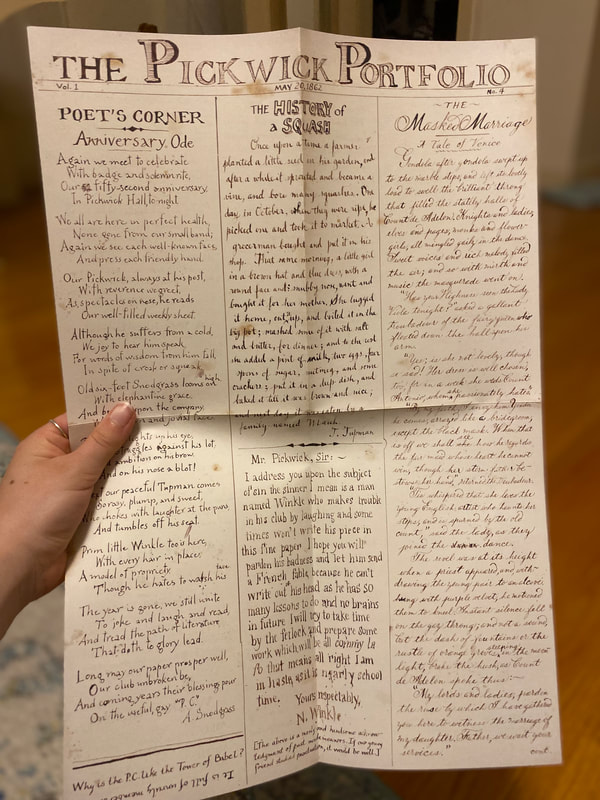 THE PICKWICK PORTFOLIO
Vol. 1
MAY 20, 1862
No. 4
POET'S CORNER
Anniversary Ode
Again we meet to celebrate
With badge and solemn rite,
Our fifty-second anniversary,
In Pickwick Hall, to night.
We all are here in perfect health,
None gone from our small band;
Again we see each well-known face,
And press each friendly hand.
Our Pickwick, always at his post,
With reverence we greet,
As, spectacles on nose, he reads
Our well-filled weekly sheet.
Although he suffers from a cold,
We joy to hear him speak,
For words of wisdom from him fall,
In spite of croak or squeak.
Old six-foot Snodgrass looms on high,
With elephantine grace,
And upon the company,
his eye,
struggles against his lot.
ambition on his brow,
And on his nose a blot!
our peaceful Tupman comes
So rosy, plump, and sweet,
Who chokes with laughter at the puns,
And tumbles off his seat.
Prim little Winkle too is here,
With every hair in place,
A model of propriety,
Though he hates to wash his face.
The year is gone, we still unite
To joke and laugh and read,
And tread the path of literature
That doth to glory lead.
Long may our paper prosper well,
Our club unbroken be,
And coming years their blessings pour
On the useful, gay "P. C."
A. Snodgrass
Why is the P.C. like the Tower of Babel?
It is full of unruly members
THE HISTORY of
a SQUASH
Once upon a time a farmer
planted a little seed in his garden, and
after a while it sprouted and became a
vine, and bore many squashes. One
day in October, when they were ripe, he
picked one and took it to market. A
grocerman bought and put it in his
shop. That same morning, a little girl
in a brown hat and blue dress, with a
round face and snubby nose, went and
bought it for her mother. She lugged
it home, cut it up, and boiled it in the
big pot; mashed some of it with salt
and butter, for dinner; and to the rest
she added a pint of milk, two eggs, four
spoons of sugar, nutmeg, and some
crackers; put it in a deep dish, and
baked it till it was brown and nice;
and next day it was eaten by a
family named March.
T. Tupman
Mr. Pickwick, Sir:-
I address you upon the subject
of sin the sinner I mean is a man
named Winkle who makes trouble
in his club by laughing and some
times won't write his piece in
this fine paper I hope you will
pardon his badness and let him send
a French fable because he can't
write out of his head as he has so
many lessons to do and no brains
in future I will try to take time
by the fetlock and prepare some
work which will be all commy la
fo that means all right I am
in haste as it is nearly school
time.
Yours respectably,
N. Winkle
[The above is a manly and handsome acknow-
ledgment of past misdemeanors. If our young
friend studied punctuation, it would be well.]
THE
Masked Marriage
A Tale of Venice
Gondola after gondola swept up
to the marble steps, and left its lovely
load to swell the brilliant throng
that filled the stately halls of
Count de Adelon. Knights and ladies,
elves and pages, monks and flower-
girls, all mingled gaily in the dance.
Sweet voices and rich melody filled
the air; and so with mirth and
music the masquerade went on.
"Has your Highness seen the lady
Viola tonight?" asked a gallant
troubadour of the fairy queen who
floated down the hall upon his
arm.
"Yes; is she not lovely, though
so sad! Her dress is well chosen,
too, for in a week she weds Count
Antonio, whom she passionately hates."
he comes arrayed like a bridegroom,
except the black mask. When that
is off we shall see how he regards
the fair maid whose heart he cannot
win, though her stern father be-
stows her hand," returned the troubadour.
"Tis whispered that she loves the
young English artist who haunts her
steps, and is spurned by the old
count," said the lady, as they
joined the dance.
The revel was at its height
when a priest appeared, and with-
drawing the young pair to an alcove,
hung with purple velvet, he motioned
them to kneel. Instant silence fell
on the gay throng; and not a sound,
but the dash of fountains or the
rustle of orange groves sleeping in the moon
light, broke the hush, as Count
de Adelon spoke thus:-
"My lords and ladies, pardon
the ruse by which I have gathered
you here to witness the marriage of
my daughter. Father, we wait your
services."
cont.